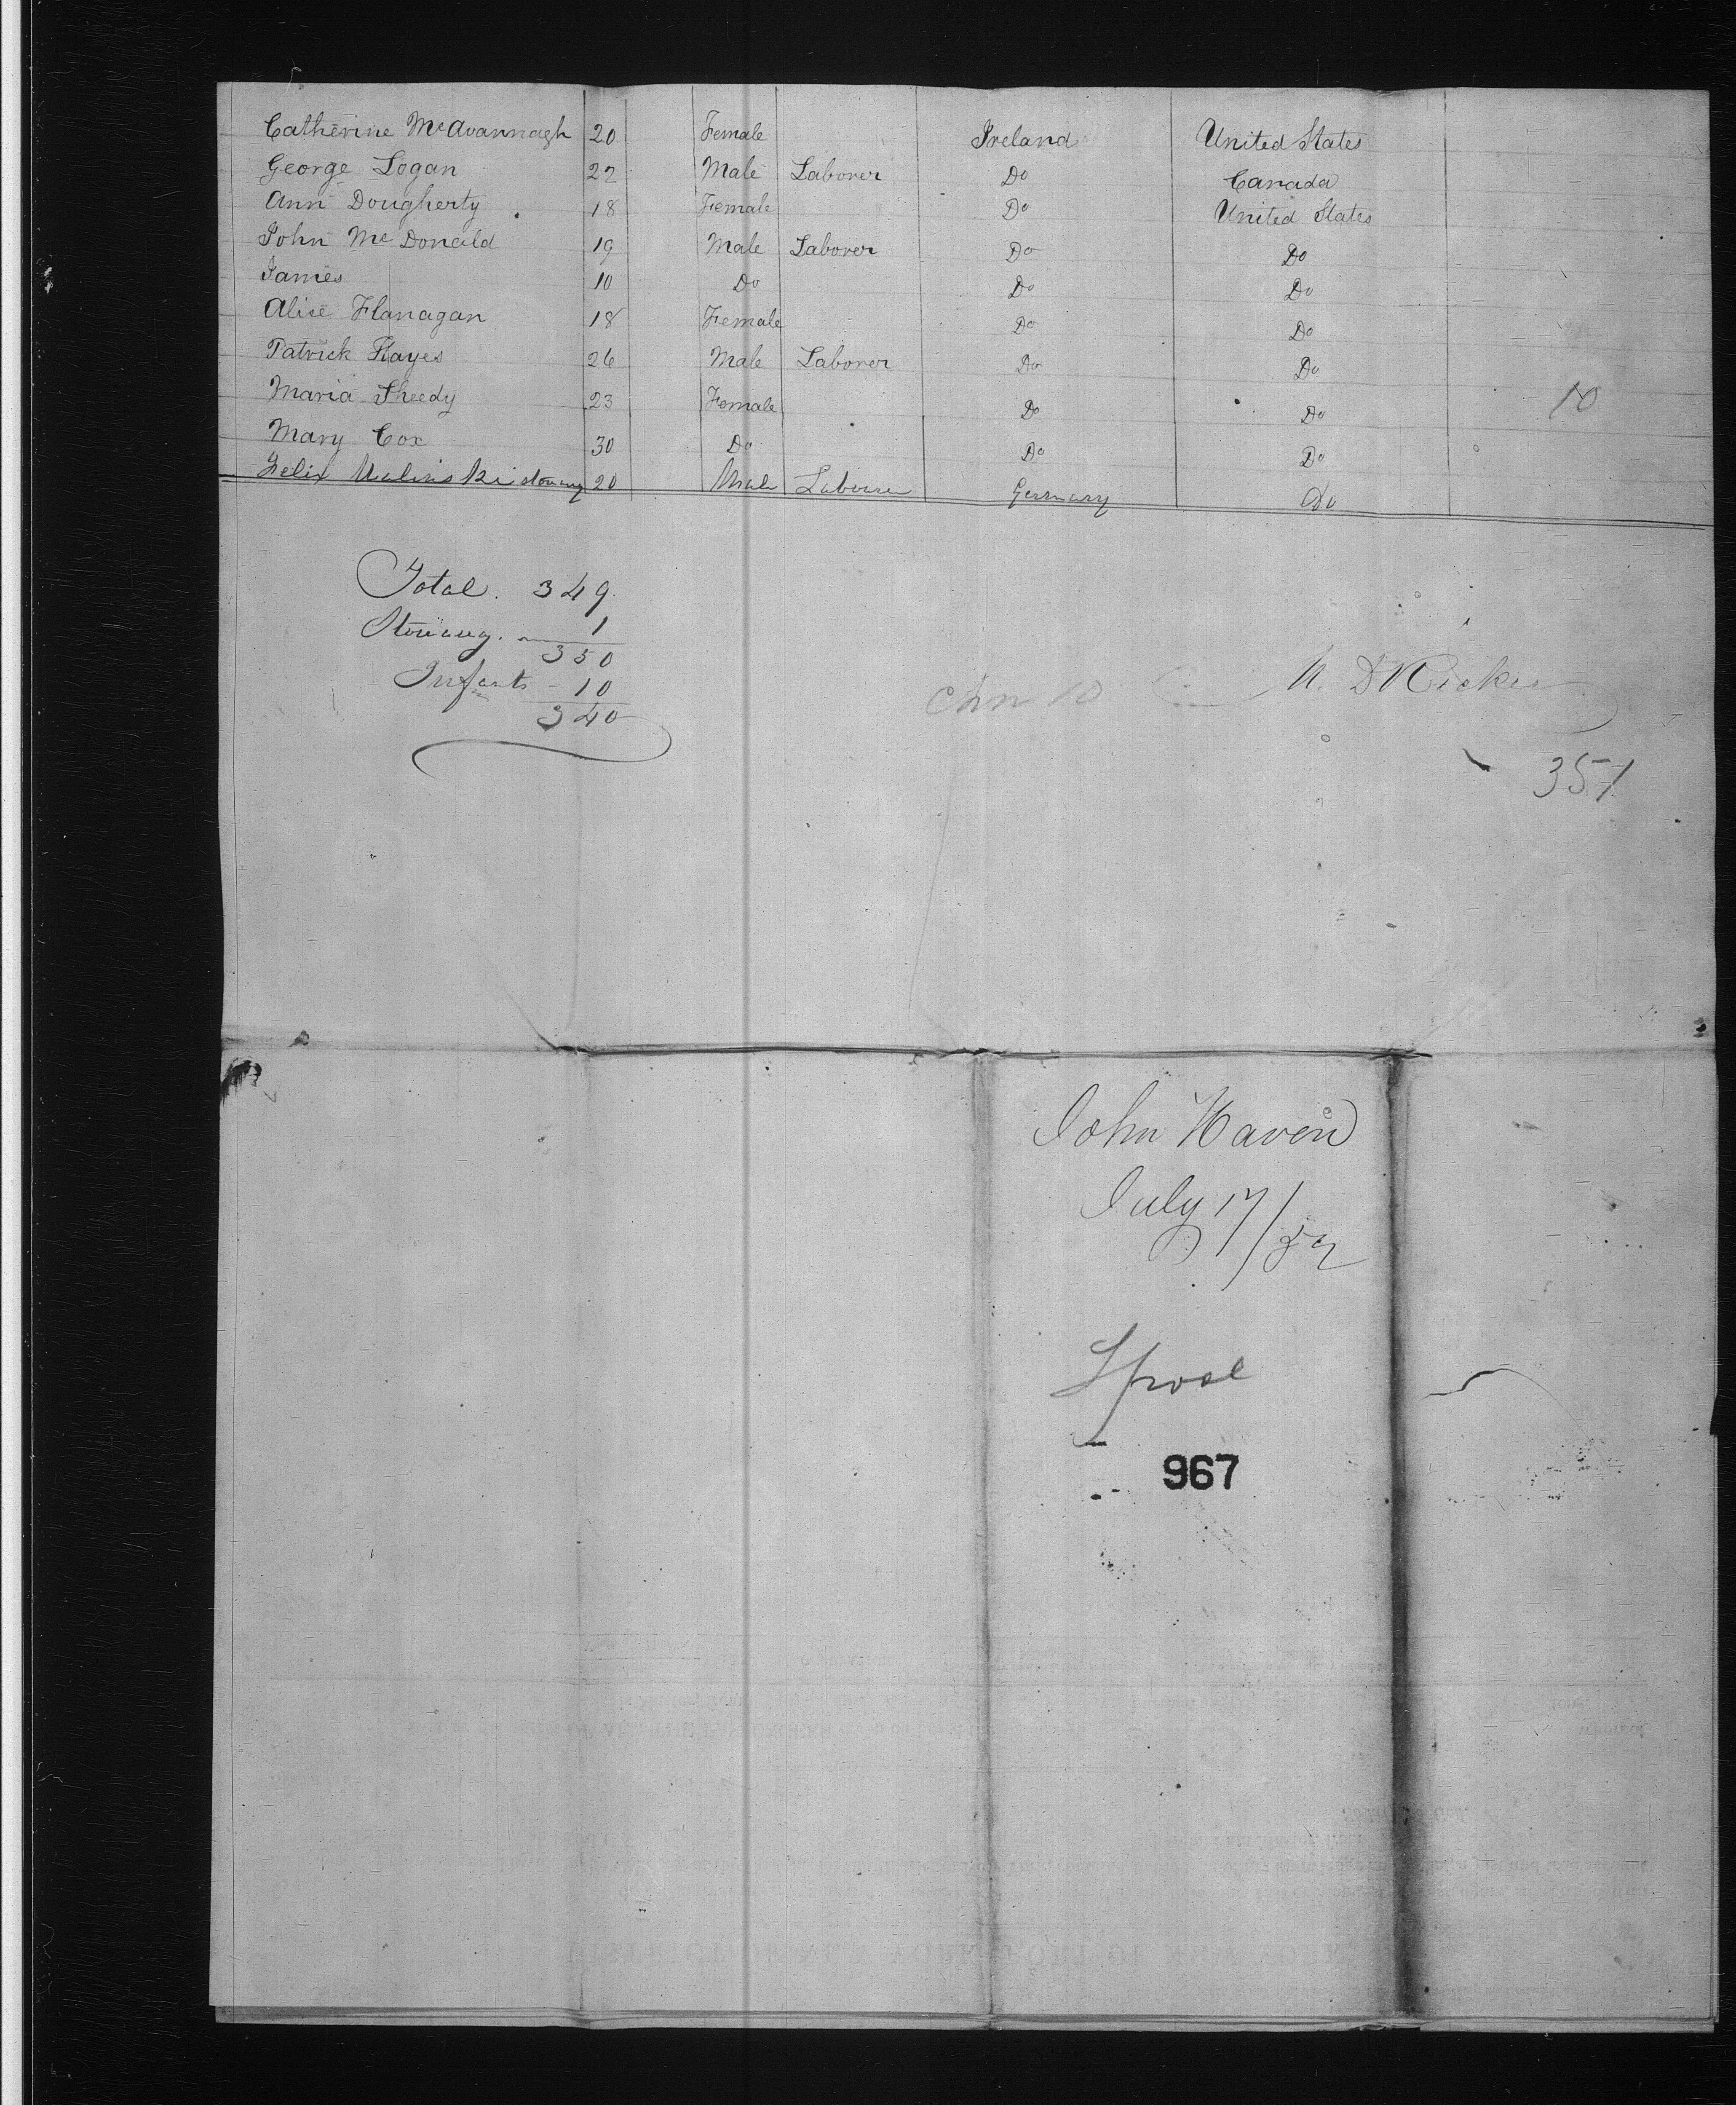 Catherine McAvannagh 20 Female Ireland United States
George Logan 22 Male Laborer Do Canada
Ann Dougherty 18 Female Do United States
John McDonald 19 Male Laborer Do Do
James 10 Do Do Do
Alice Flanagan 18 Female Do Do
Patrick Hayes 26 Male Laborer Do Do
Maria Sheedy 23 Female Do Do 10
Mary Cox 30 Do Do Do
Felix 20 Male Laborer Germany Do
Total. 349
Stowawy. 1
350
Infants - 10
340
10
357
John Haven
July 17/52
Lpool
967